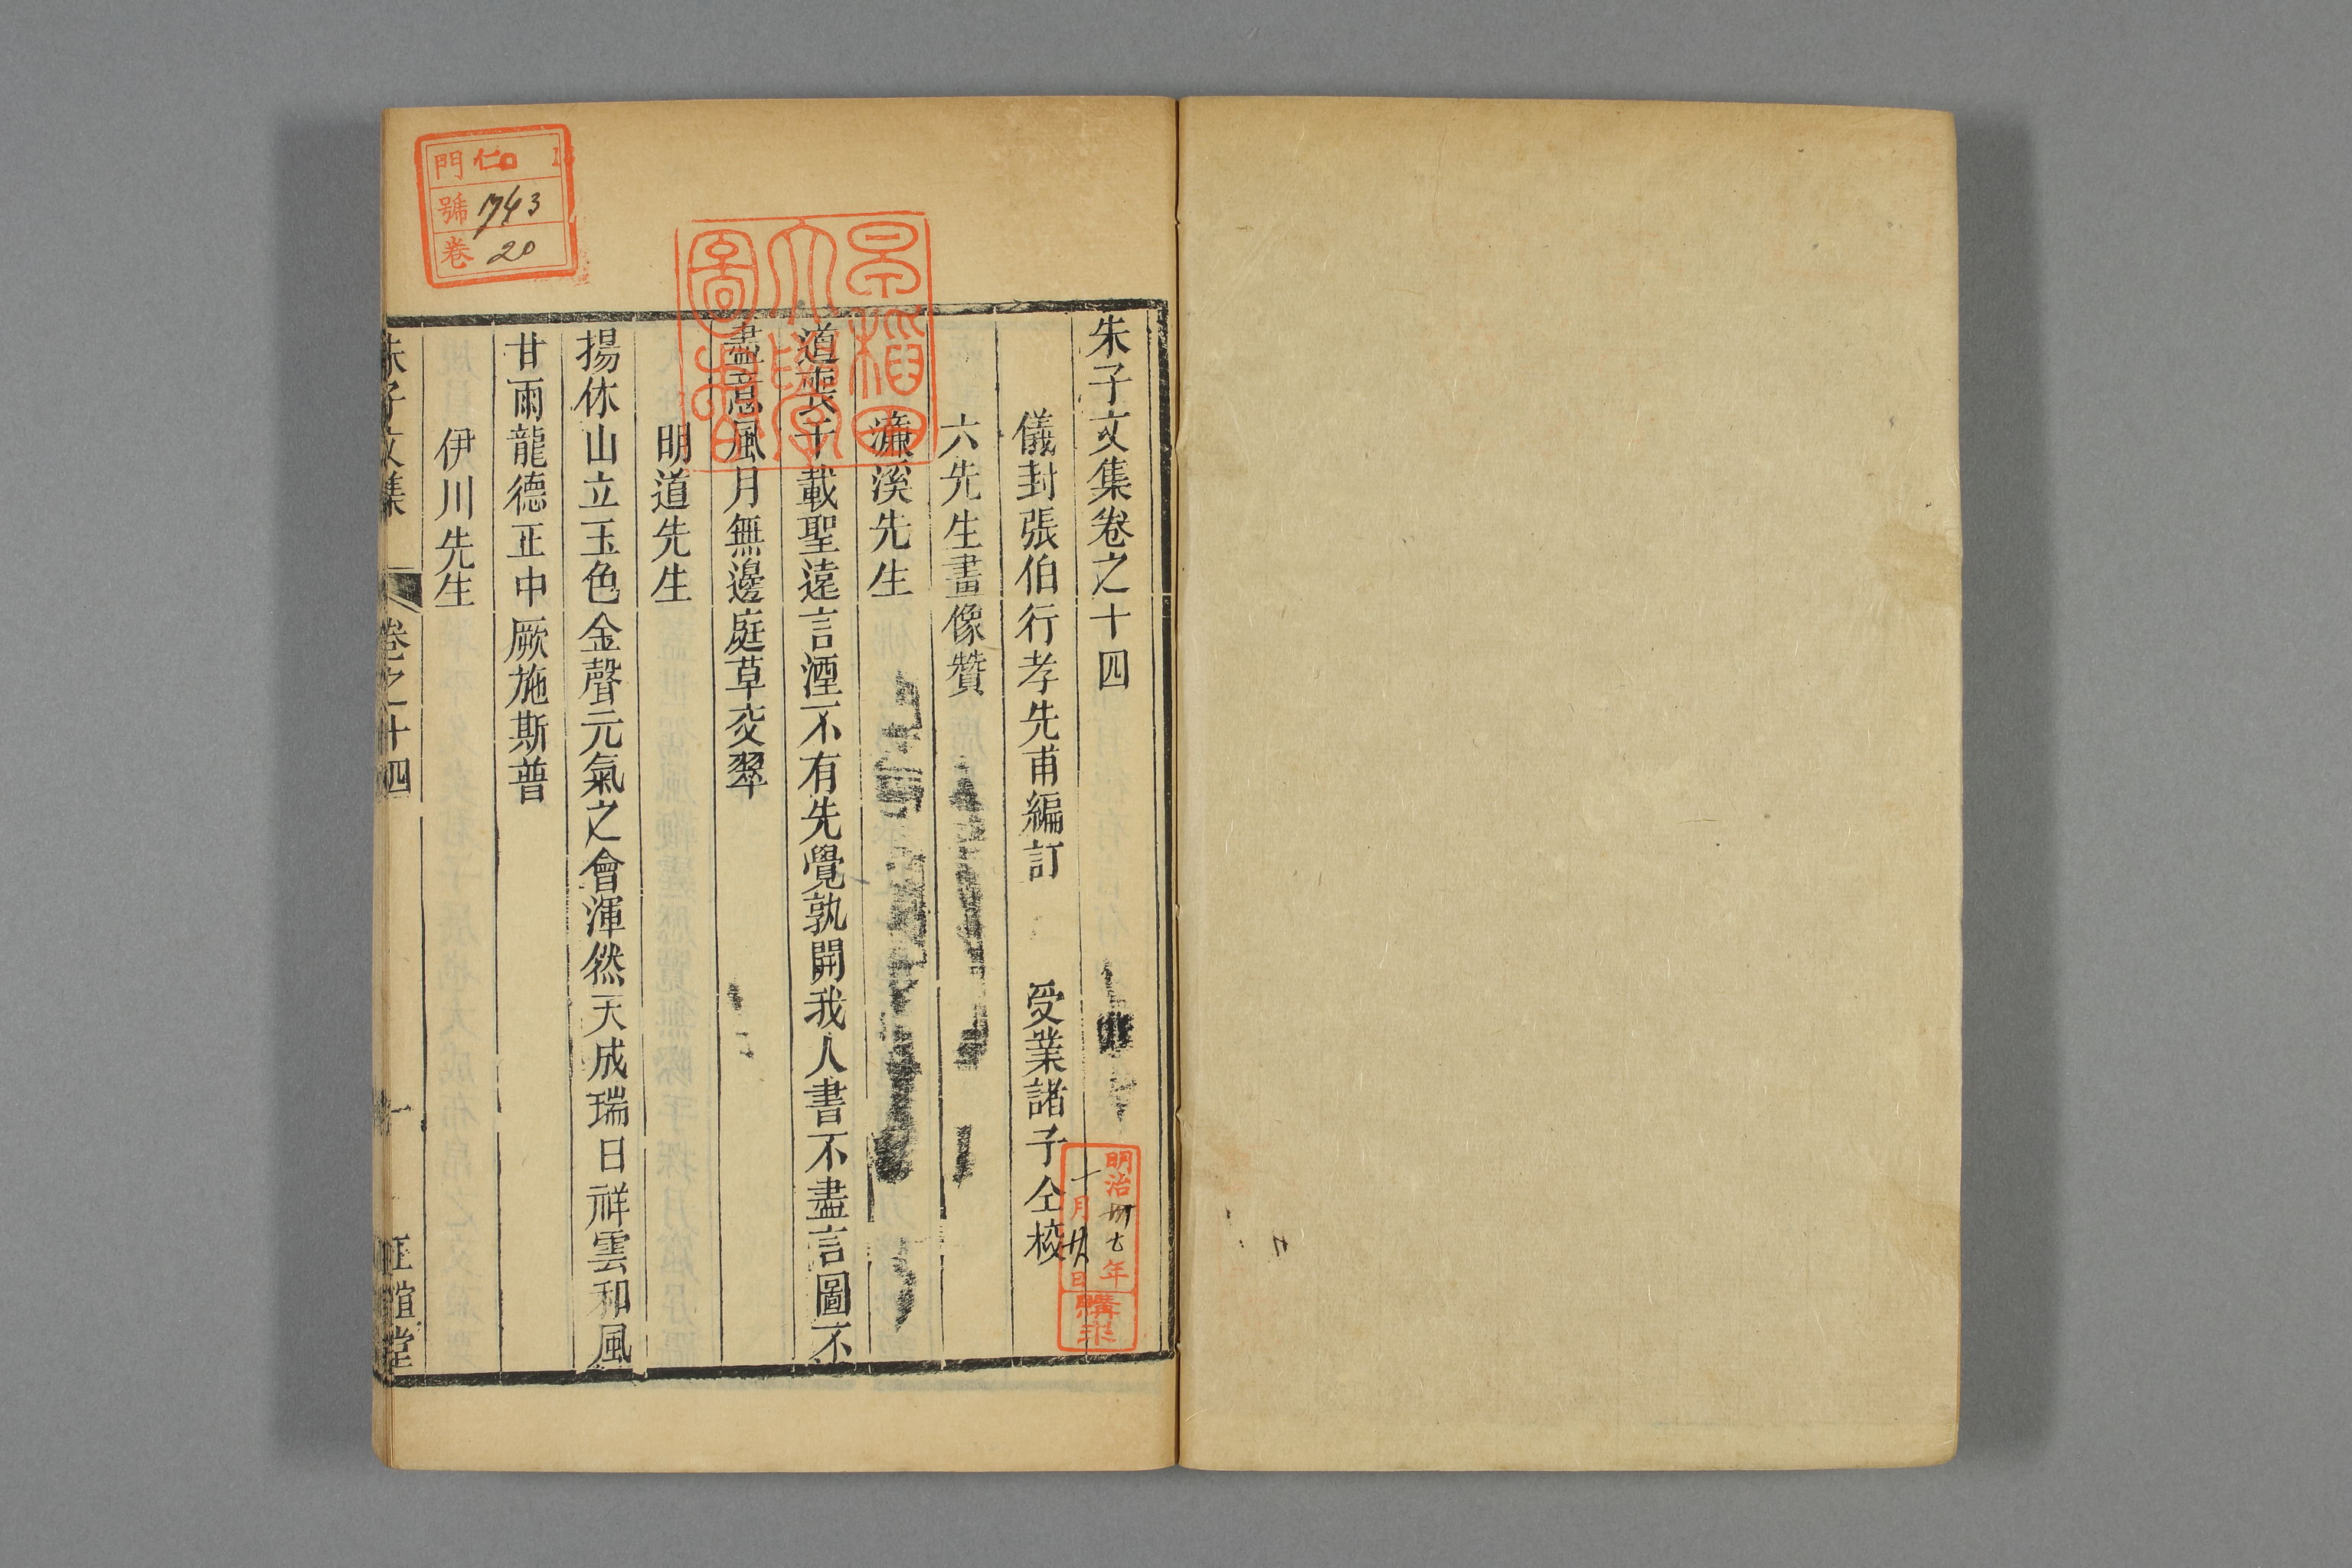 朱子文集卷之十四
儀封張伯行孝先甫編訂　受業諸子仝校
六先生畫像贊
濂溪先生
道喪千載聖遠言湮不有先覺孰開我人書不盡言圖不
盡意風月無邊庭草交翠
明道先生
揚休山立玉色金聲元氣之會渾然天成瑞日祥雲和風
甘雨龍德正中厥施斯普
伊川先生
朱子文集　卷之十四　一　正誼堂
門 仁口
號 1743
卷 20
早稲田大學圖書
明治卅七年
十月廿日
購求